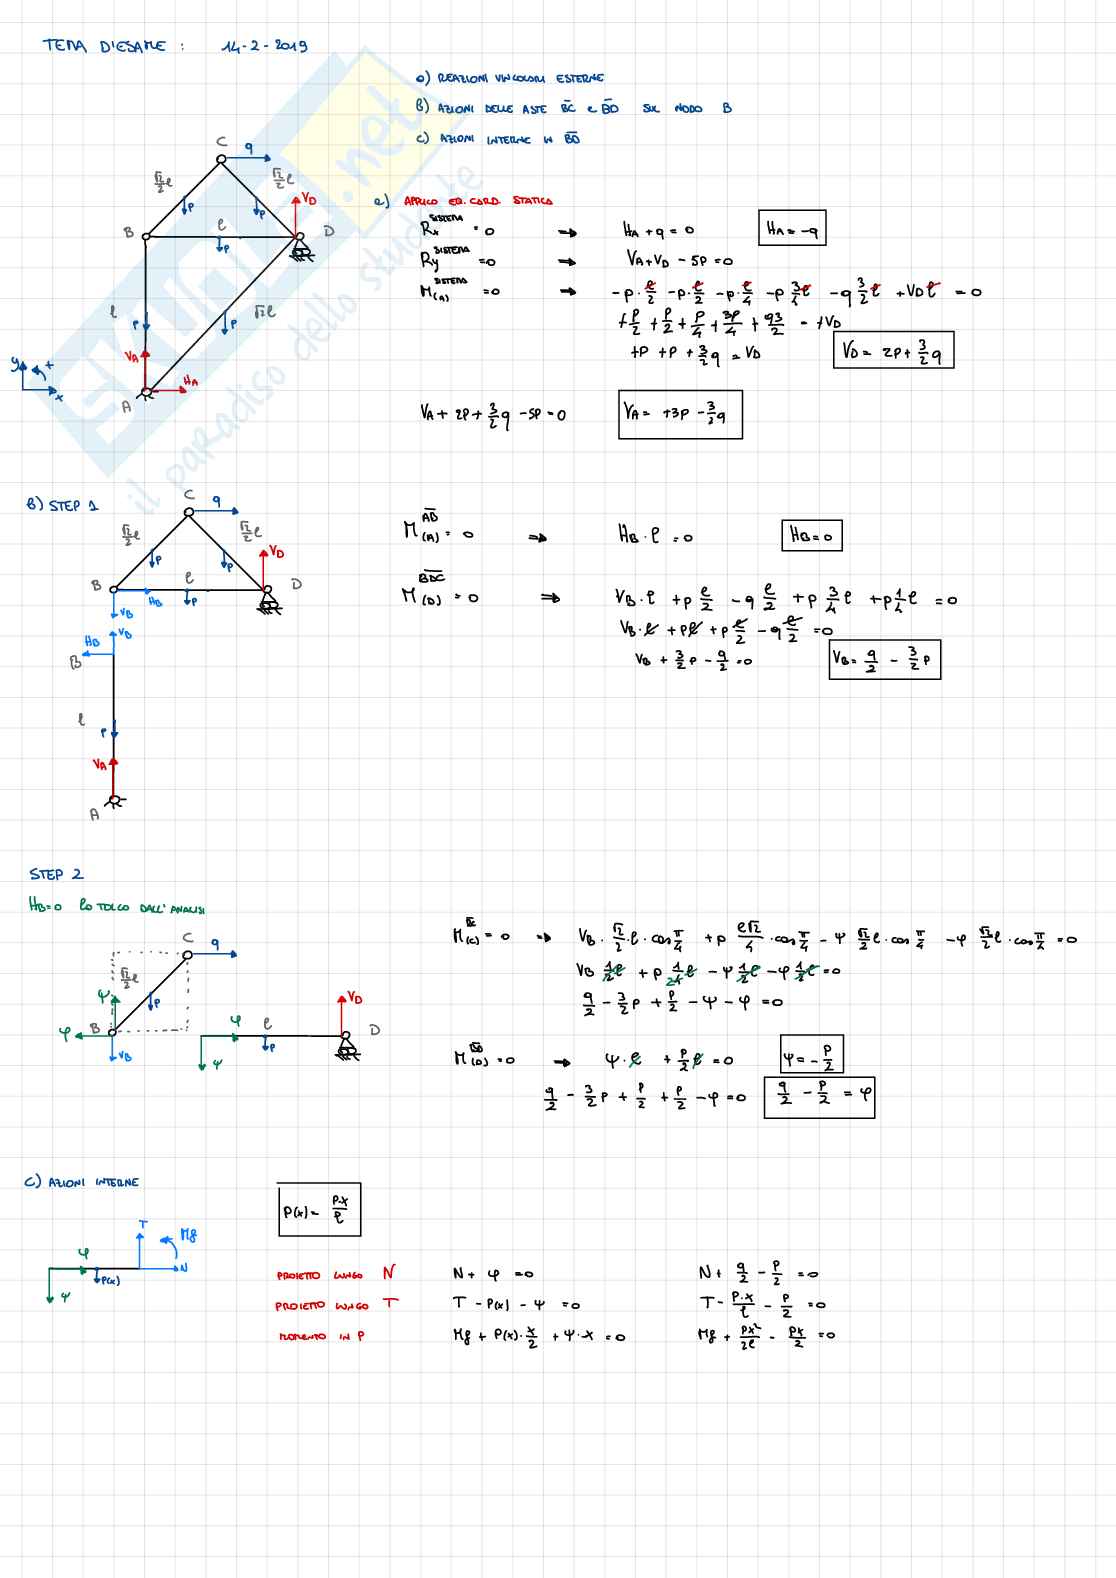 TEMA D'ESAME : 14-2-2019
a) REAZIONI VINCOLARI ESTERNE
b) AZIONI DELLE ASTE BC e BD SUL NODO B
c) AZIONI INTERNE IN BD
C q
√2/2 ℓ √2/2 ℓ
P P VD
B ℓ D
P
ℓ P √2ℓ
P
VA HA
A
y + x
a) APPLICO EQ. CARD. STATICA
Rx^SISTEMA = 0 → HA + q = 0 HA = -q
Ry^SISTEMA = 0 → VA + VD - 5P = 0
M(A)^SISTEMA = 0 → -P·ℓ/2 - P·ℓ/2 - P·ℓ/4 - P 3/4 ℓ - q 3/2 ℓ + VD ℓ = 0
+P/2 + P/2 + P/4 + 3P/4 + q3/2 = +VD
+P + P + 3/2 q = VD VD = 2P + 3/2 q
VA + 2P + 3/2 q - 5P = 0 VA = +3P - 3/2 q
SKUOLA.net
il paradiso dello studente
B) STEP 1
C q
√2/2 ℓ √2/2 ℓ
P P VD
B ℓ D
HB P
VB
HB VB
B
ℓ
P
VA
A
M(A)^AB = 0 → HB · ℓ = 0 HB = 0
M(D)^BDC = 0 → VB · ℓ + P ℓ/2 - q ℓ/2 + P 3/4 ℓ + P 1/4 ℓ = 0
VB · ℓ + Pℓ + P ℓ/2 - q ℓ/2 = 0
VB + 3/2 P - q/2 = 0 VB = q/2 - 3/2 P
STEP 2
HB = 0 LO TOLGO DALL'ANALISI
C q
√2/2 ℓ
ψ P
φ B
VB
φ ℓ VD D
P
ψ
M(C)^BC = 0 → VB · √2/2 · ℓ · cos π/4 + P ℓ√2/4 · cos π/4 - ψ √2/2 ℓ · cos π/4 - φ √2/2 ℓ · cos π/4 = 0
VB 1/2 ℓ + P 1/24 ℓ - ψ 1/2 ℓ - φ 1/2 ℓ = 0
q/2 - 3/2 P + P/2 - ψ - φ = 0
M(D)^BD = 0 → ψ · ℓ + P/2 ℓ = 0 ψ = - P/2
q/2 - 3/2 P + P/2 + P/2 - φ = 0 q/2 - P/2 = φ
C) AZIONI INTERNE
P(x) = P·x/ℓ
T Mf
φ N
P(x)
ψ
PROIETTO LUNGO N N + φ = 0 N + q/2 - P/2 = 0
PROIETTO LUNGO T T - P(x) - ψ = 0 T - P·x/ℓ - P/2 = 0
MOMENTO IN P Mf + P(x) · x/2 + ψ · x = 0 Mf + Px²/2ℓ - Px/2 = 0